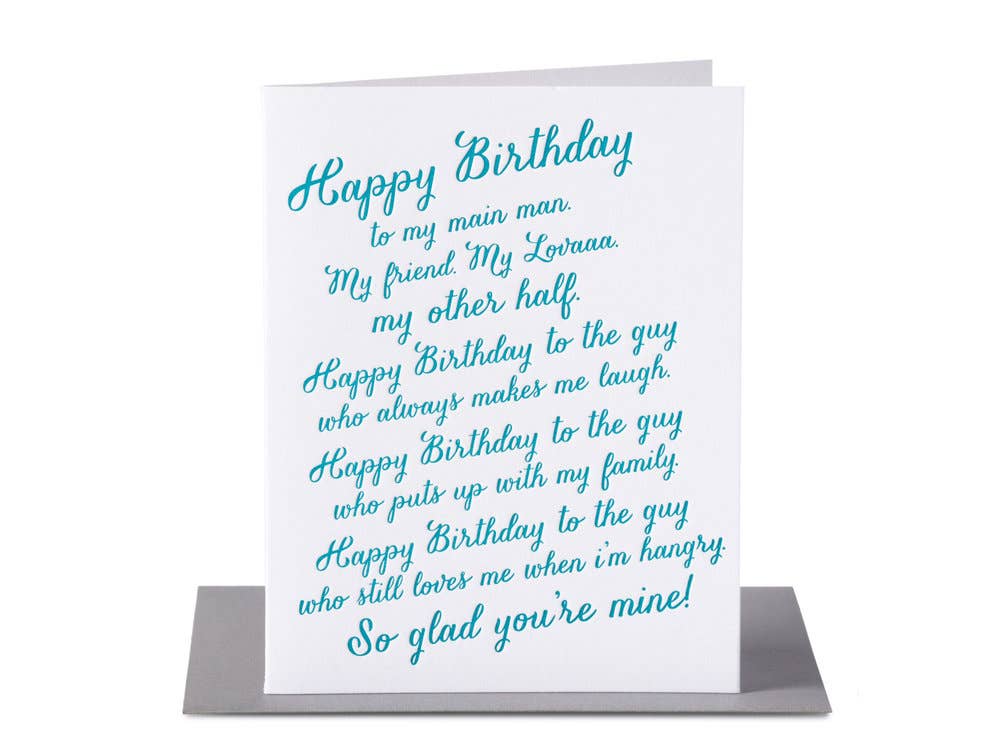 Happy Birthday
to my main man.
My friend. My Lovaaa.
my other half.
Happy Birthday to the guy
who always makes me laugh.
Happy Birthday to the guy
who puts up with my family.
Happy Birthday to the guy
who still loves me when i'm hangry.
So glad you're mine!